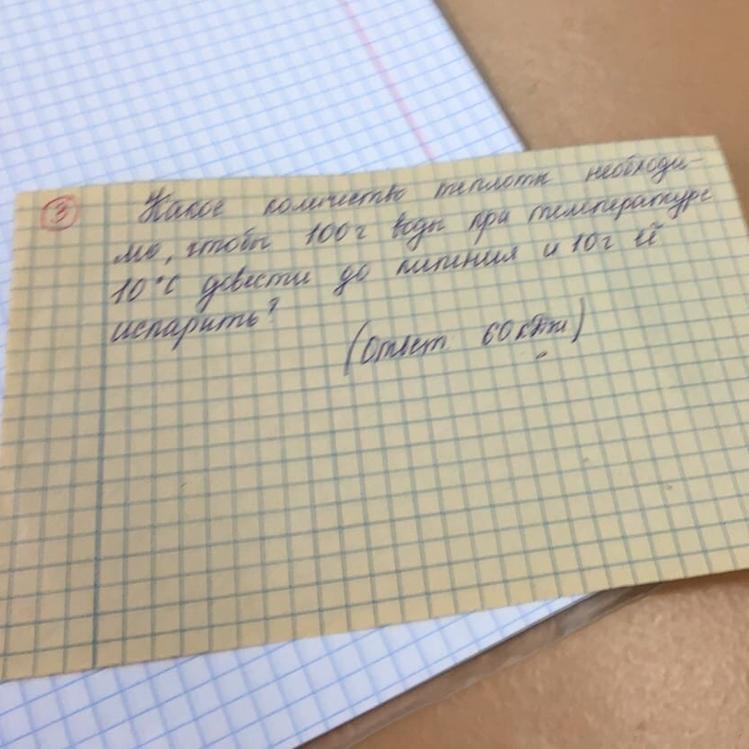 3 Какое количество теплоты необходи-
мо, чтобы 100г воды при температуре
10°С довести до кипения и 10г её
испарить?
(Ответ 60 кДж)